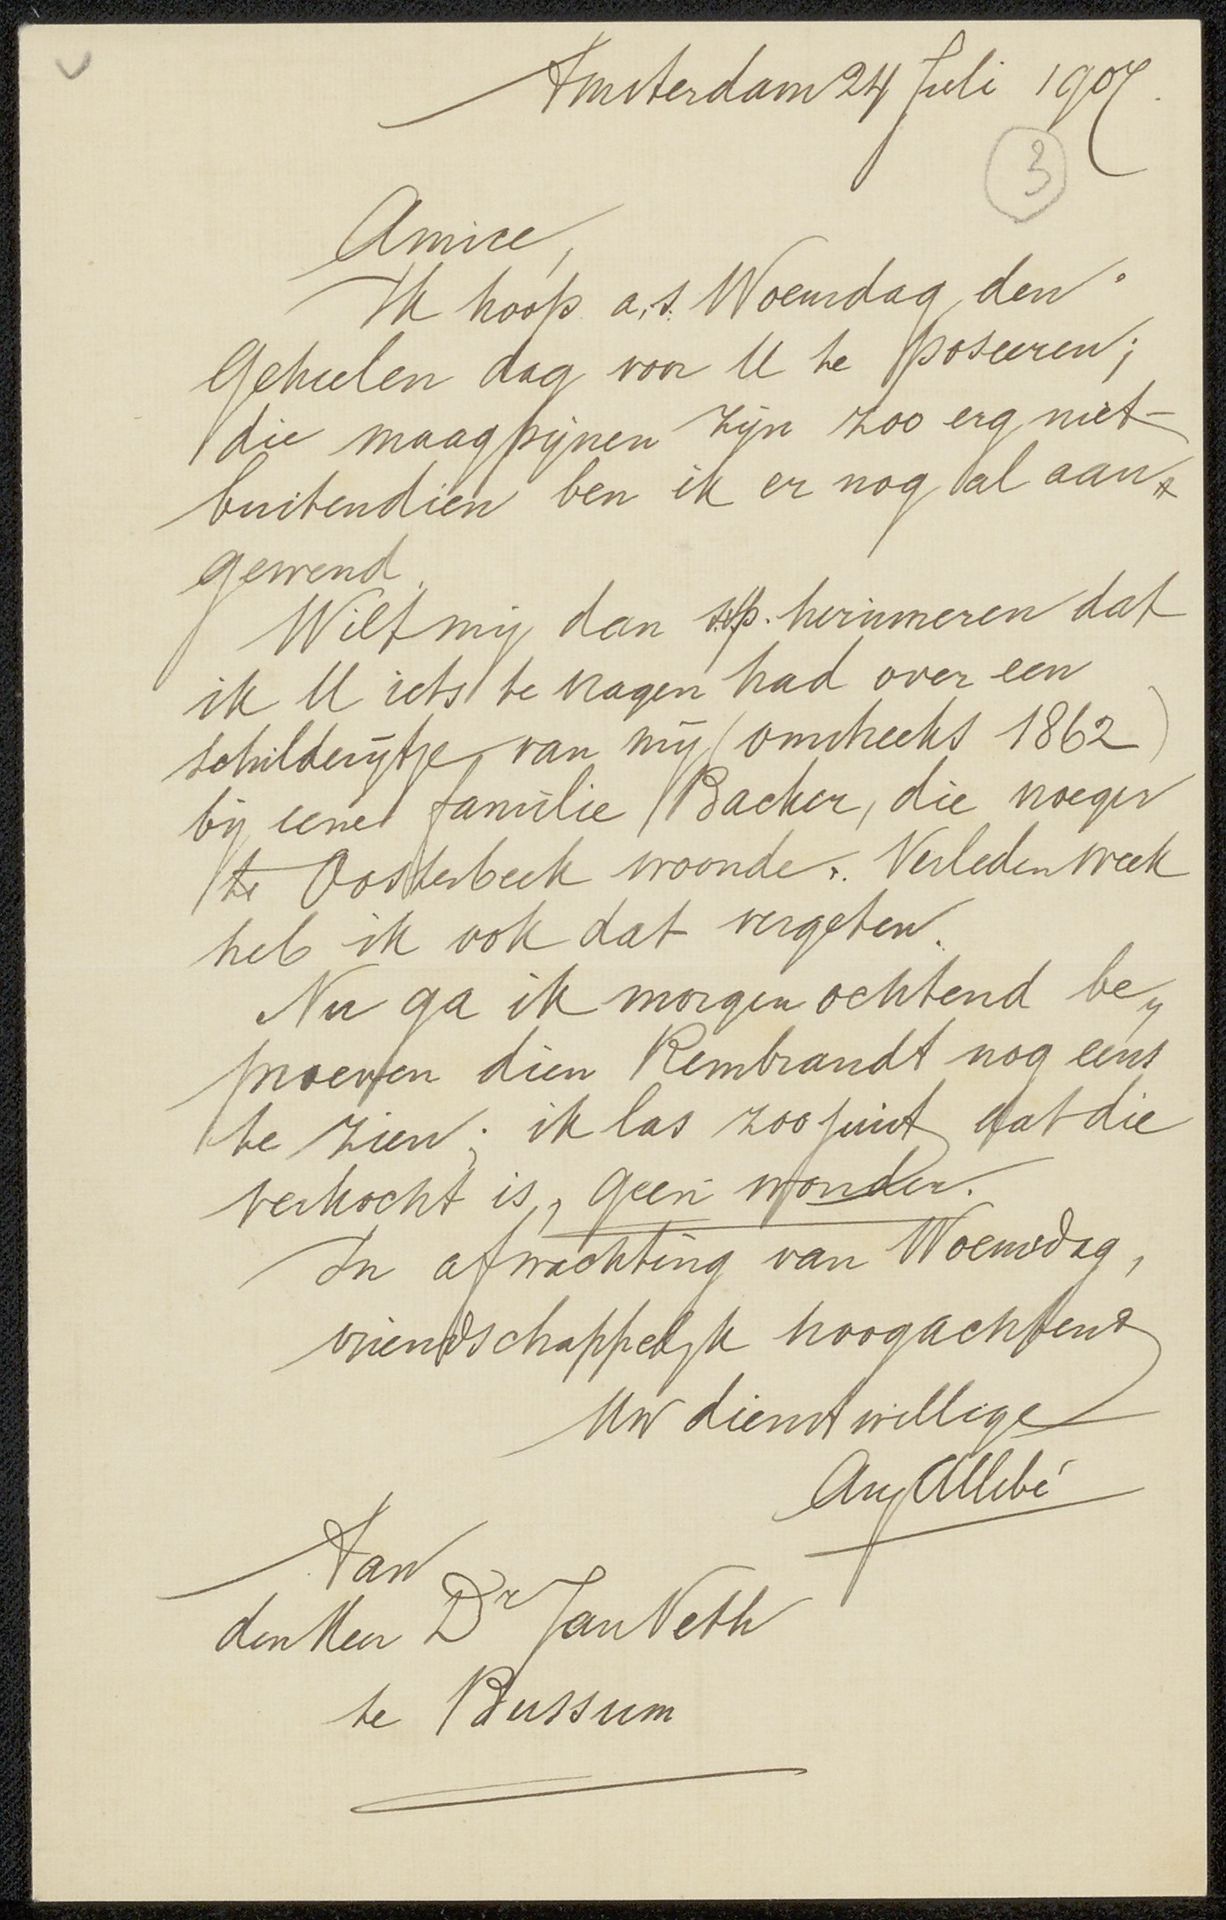 Amsterdam 24 Juli 1907.
3
Amice,
Ik hoop a.s. Woensdag den
geheelen dag voor U te poseeren;
die maagpijnen zijn zoo erg niet
buitendien ben ik er nog al aan
gewend.
Wilt mij dan svp. herinneren dat
ik U iets te vragen had over een
schilderijtje van mij (omstreeks 1862)
bij eene familie Backer, die vroeger
te Oosterbeek woonde. Verleden week
heb ik ook dat vergeten.
Nu ga ik morgen ochtend be„
proeven dien Rembrandt nog eens
te zien; ik las zoo juist dat die
verkocht is, geen wonder.
In afwachting van Woensdag,
vriendschappelijk hoogachtend
Uw dienstwillige
Aug Allebé
Aan
den Heer Dr Jan Veth
te Bussum